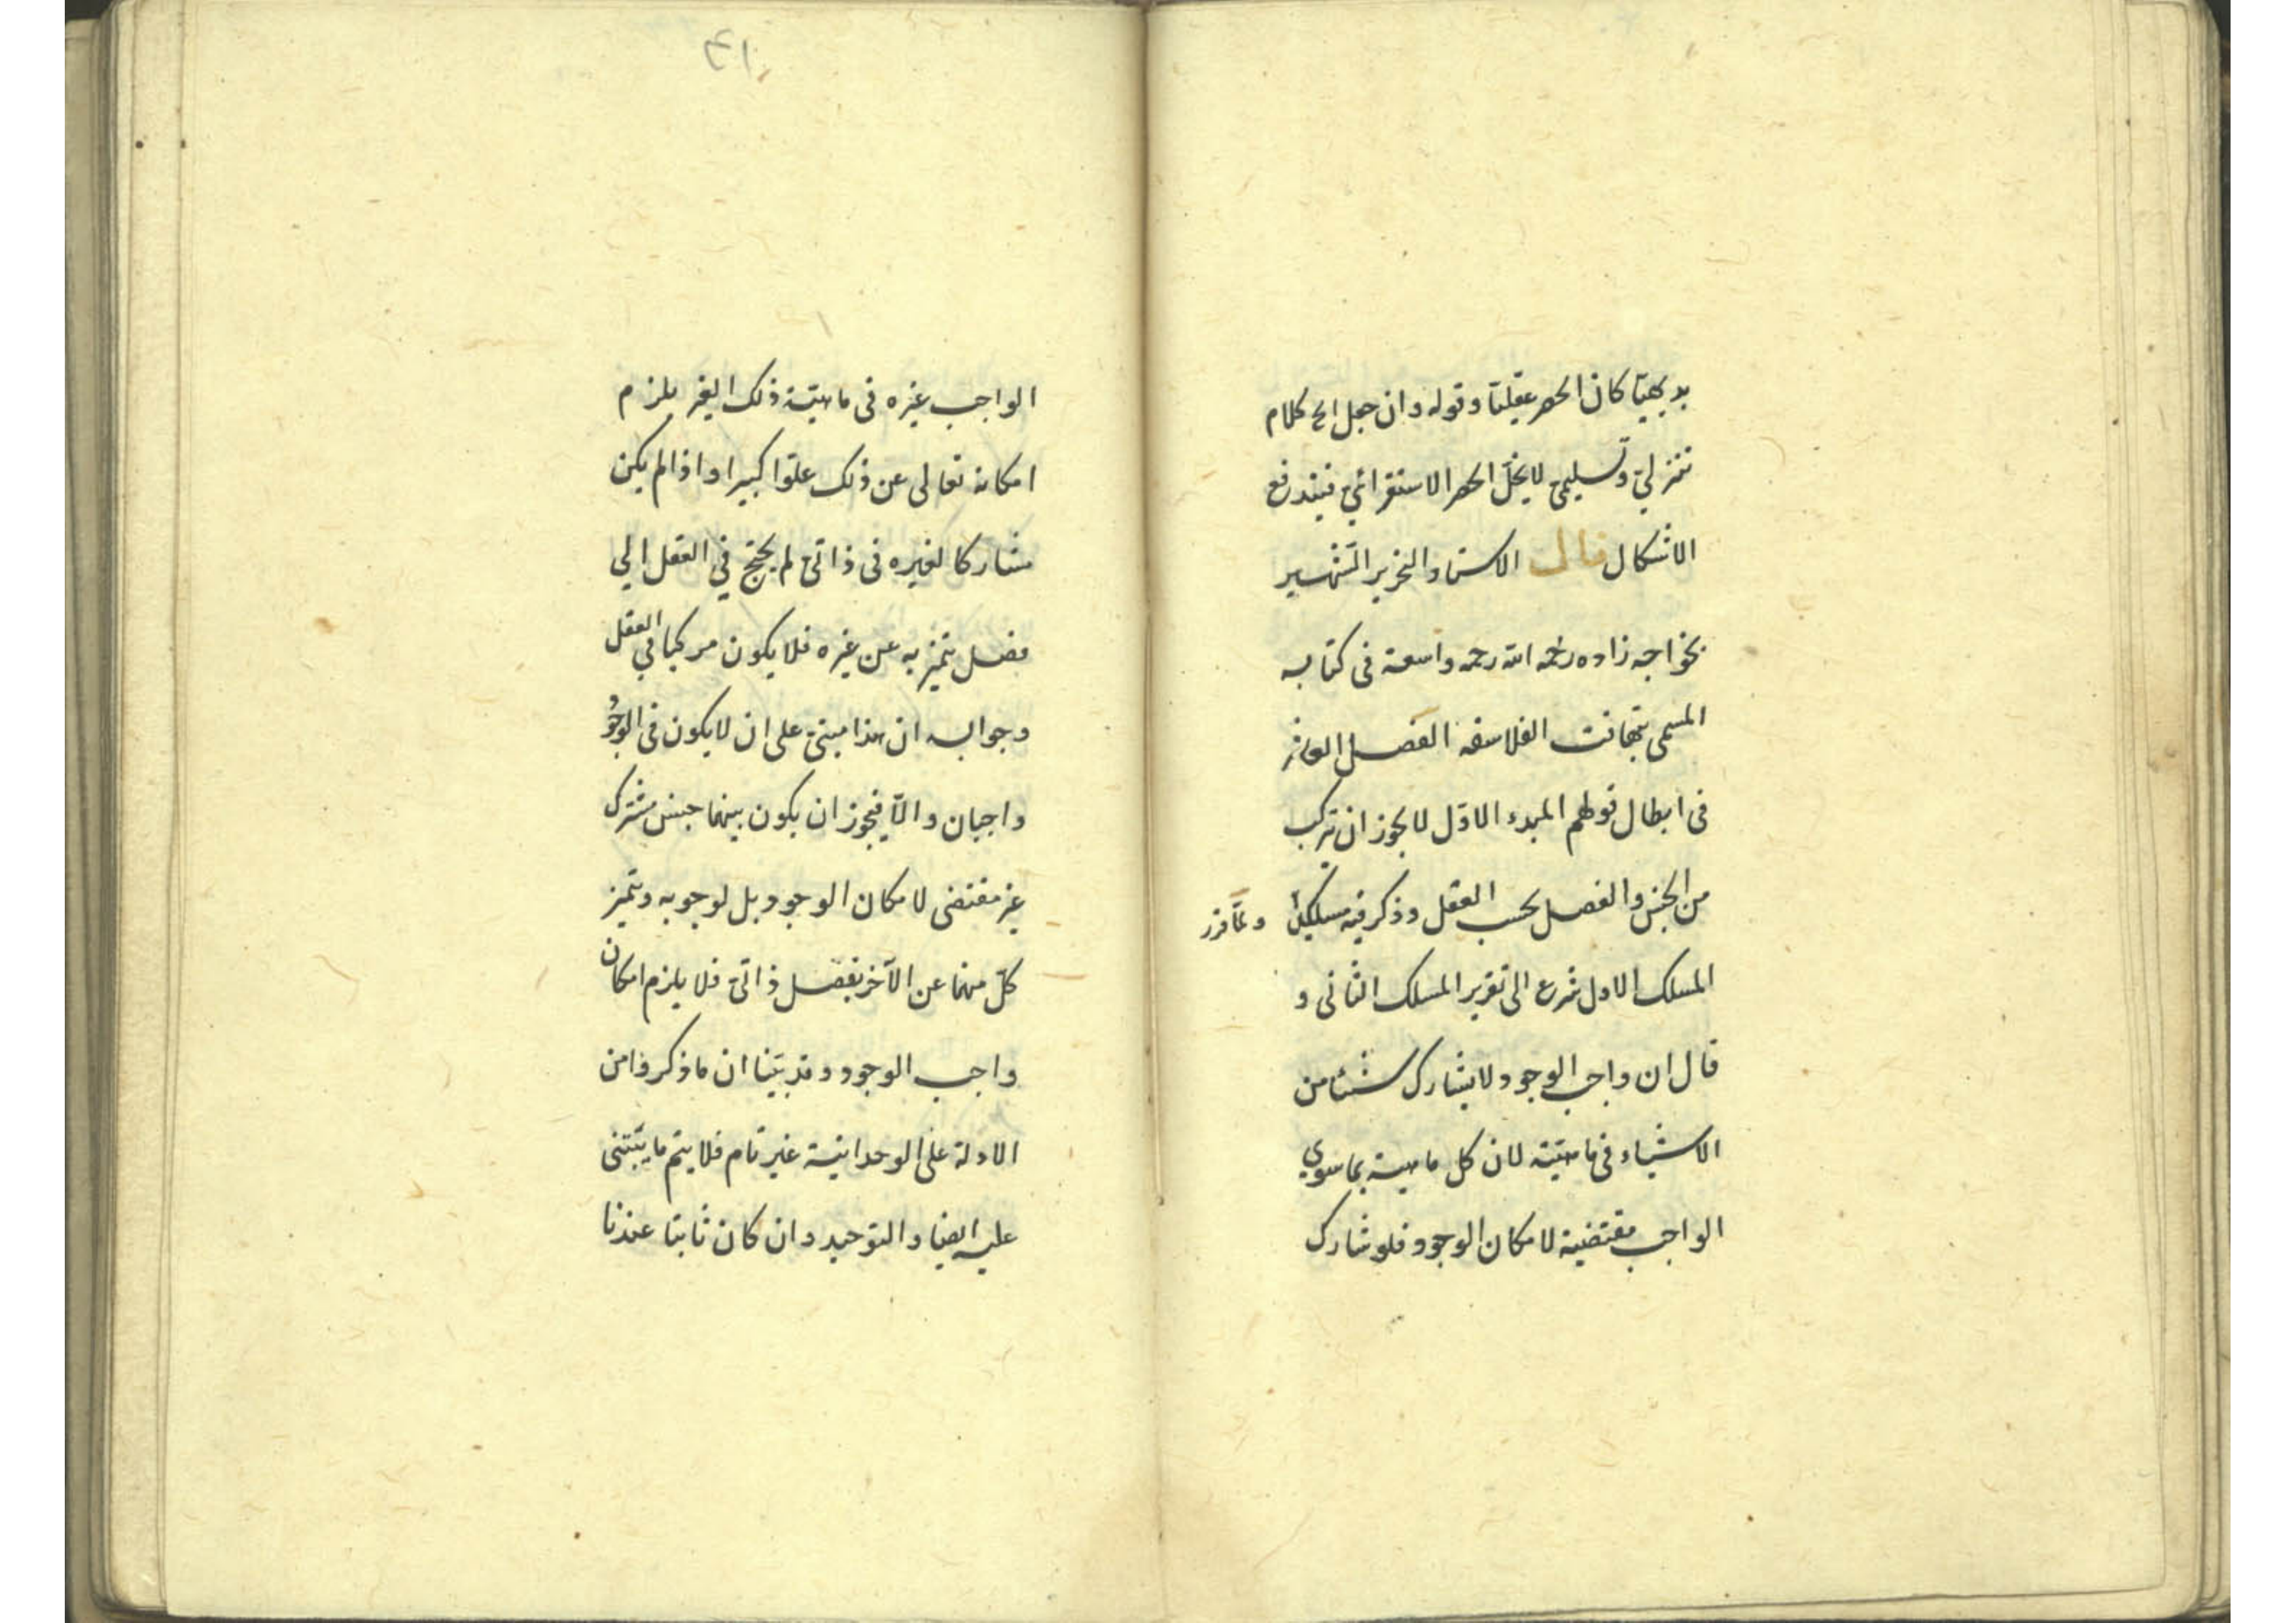 بديهيّا كان الحصر عقليّا وقوله وان جعل الخ كلام
تنزليّ وتسليميّ لا يخلّ الحصر الاستقرائيّ فيندفع
الاشكال قال الاستاد النحرير الشهير
بخواجه زاده رحمه الله رحمة واسعة فى كتابه
المسمى بتهافت الفلاسفه الفصل العاشر
فى ابطال قولهم المبدء الاوّل لا يجوز ان يتركب
من الجنس والفصل بحسب العقل وذكر فيه مسلكين ولمّا قرر
المسلك الاول شرع الى تقرير المسلك الثانى و
قال ان واجب الوجود لا يشارك شيئا من
الاشياء فى ماهيّته لان كل ماهية بما سوى
الواجب مقتضية لامكان الوجود فلو شارك
٤١
الواجب غيره فى ماهيّة ذلك الغير يلزم
امكانه تعالى عن ذلك علوّا كبيرا واذا لم يكن
مشاركا لغيره فى ذاتىّ لم يحتج في العقل الي
فصل يتميز به عن غيره فلا يكون مركبا في العقل
وجوابه ان هذا مبنىّ على ان لا يكون فى الوجود
واجبان والّا فيجوز ان يكون بينهما جنس مشترك
غير مقتضى لامكان الوجود بل لوجوبه ويتميز
كلّ منهما عن الآخر بفصل ذاتىّ فلا يلزم امكان
واجب الوجود وقد بيّنا ان ما ذكروا من
الادلة على الوحدانية غير تام فلا يتم ما يبتنى
عليه ايضا والتوحيد وان كان ثابتا عندنا